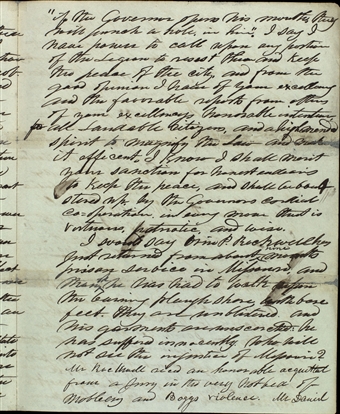 "if the Governor opens his mouth they
will punch a hole in him." I say I
have power to call upon any portion
of the Legion to resist them and keep
the peace of the city, and from the
good opinion I have of your excellency
and the favorable reports from others
of your excellencys honorable intentions
for all Laudable Citizens, and a high minded
spirit to magnify the law and make
it efficient I know I shall merit
your sanction for honest endeavors
to keep the peace, and shall be bol
stered up by the Governors cordial
cooperation in every move that is
virtuous, patriotic, and wise.
I would say Orin P. Rockwell has
just returned from about months
prison service in Missouri, and
has had to walk upon
the burning plough shares with bare
feet They are unblistered and
his garments are unscorched. He
has suffered innocently, who will
not see the infamies of Missouri?
Mr Rockwell rec'd an honorable acquittal
from a Jury in the very hotbed of
mobbery and Boggs violence. Mr Daniel